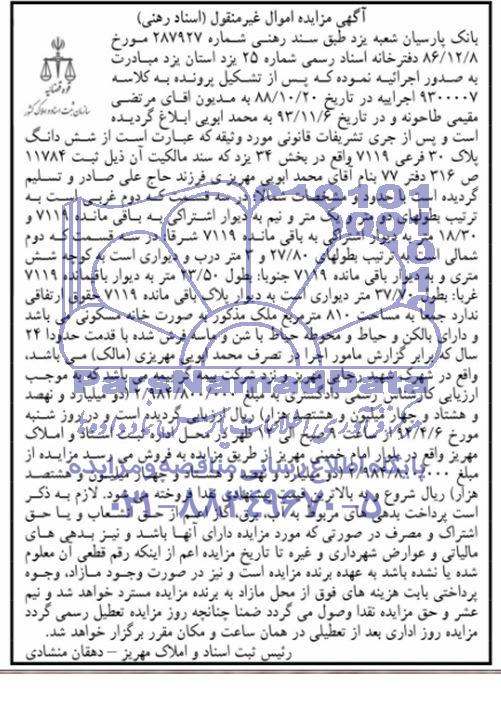 آگهی مزایده اموال غیرمنقول (اسناد رهنی)
بانک پارسیان شعبه یزد طبق سند رهنی شماره ۲۸۷۹۲۷ مورخ
۸۶/۱۲/۸ دفترخانه اسناد رسمی شماره ۲۵ یزد استان یزد مبادرت
به صدور اجرائیه نموده که پس از تشکیل پرونده به کلاسه
۹۳۰۰۰۰۷ اجراییه در تاریخ ۸۸/۱۰/۲۰ به مدیون آقای مرتضی
مقیمی طاحونه و در تاریخ ۹۳/۱۱/۶ به محمد ابویی ابلاغ گردیده
است و پس از جری تشریفات قانونی مورد وثیقه که عبارت است از شش دانگ
پلاک ۳۰ فرعی ۷۱۱۹ واقع در بخش ۳۴ یزد که سند مالکیت آن ذیل ثبت ۱۱۷۸۴
ص ۳۱۶ دفتر ۷۷ بنام آقای محمد ابویی مهریزی فرزند حاج علی صادر و تسلیم
گردیده است با حدود و مشخصات شمالا: در سه قسمت که دوم غربی است به
ترتیب بطولهای دو متر و یک متر و نیم به دیوار اشتراکی به باقی مانده ۷۱۱۹ و
۱۸/۳۰ متر به دیوار اشتراکی به باقی مانده ۷۱۱۹ شرقا: در سه قسمت که دوم
شمالی است به ترتیب بطولهای ۲۷/۸۰ و ۳ متر درب و دیواری است به کوچه شش
متری و به دیوار باقی مانده ۷۱۱۹ جنوبا: بطول ۲۳/۵۰ متر به دیوار باقیمانده ۷۱۱۹
غربا: بطول ۳۷/۷۰ متر دیواری است به دیوار پلاک باقی مانده ۷۱۱۹ حقوق ارتفاقی
ندارد جمعا به مساحت ۸۱۰ مترمربع ملک مذکور به صورت خانه مسکونی می باشد
و دارای بالکن و حیاط و محوطه حیاط با شن و ماسه فرش شده با قدمت حدودا ۲۴
سال که برابر گزارش مامور اجرا در تصرف محمد ابویی مهریزی (مالک) می باشد،
واقع در شهرک شهید رجایی مهریز و نزد شرکت بیمه گر بیمه می باشد که به موجب
ارزیابی کارشناس رسمی دادگستری به مبلغ ۲/۹۸۴/۸۰۰/۰۰۰ (دو میلیارد و نهصد
و هشتاد و چهار میلیون و هشتصد هزار) ریال ارزیابی گردیده است و در روز شنبه
مورخ ۹۴/۴/۶ از ساعت ۹ صبح الی ۱۲ ظهر در محل اداره ثبت اسناد و املاک
مهریز واقع در بلوار امام خمینی مهریز از طریق مزایده به فروش می رسد مزایده از
مبلغ ۲/۹۸۴/۸۰۰/۰۰۰ (دو میلیارد و نهصد و هشتاد و چهار میلیون و هشتصد
هزار) ریال شروع و به بالاترین قیمت پیشنهادی نقدا فروخته می شود. لازم به ذکر
است پرداخت بدهی های مربوط به آب، برق، گاز اعم از حق انشعاب و یا حق
اشتراک و مصرف در صورتی که مورد مزایده دارای آنها باشد و نیز بدهی های
مالیاتی و عوارض شهرداری و غیره تا تاریخ مزایده اعم از اینکه رقم قطعی آن معلوم
شده یا نشده باشد به عهده برنده مزایده است و نیز در صورت وجود مازاد، وجوه
پرداختی بابت هزینه های فوق از محل مازاد به برنده مزایده مسترد خواهد شد و نیم
عشر و حق مزایده نقدا وصول می گردد ضمنا چنانچه روز مزایده تعطیل رسمی گردد
مزایده روز اداری بعد از تعطیلی در همان ساعت و مکان مقرر برگزار خواهد شد.
رئیس ثبت اسناد و املاک مهریز – دهقان منشادی
قوه قضائیه
سازمان ثبت اسناد و املاک کشور
ParsNamadData
پایگاه اطلاع رسانی مناقصه و مزایده
۰۲۱-۸۸۳۴۹۶۷۰-۵